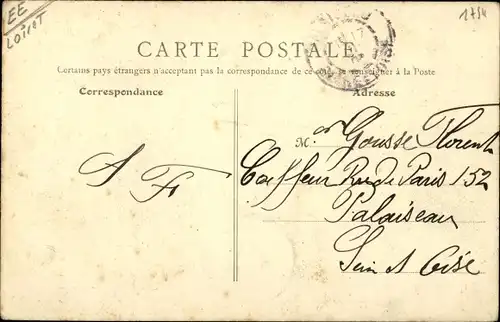 EE
LOIRET
1754
CARTE POSTALE
Certains pays étrangers n'acceptant pas la correspondance de ce côté, se renseigner à la Poste
Correspondance
Adresse
Mr Gousse Florent
Coiffeur Rue de Paris 152
Palaiseau
Seine et Oise
A F